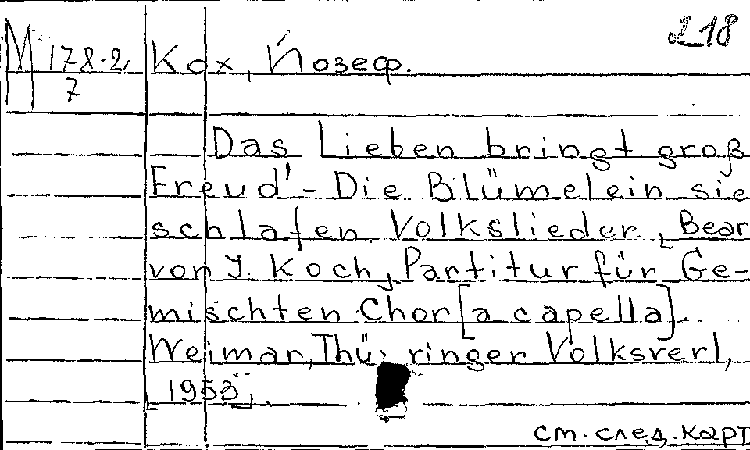 218
М 178-2/7 Кох, Йозеф.
Das Lieben bringt groß
Freud' - Die Blümelein sie
schlafen. Volkslieder, Bear
von J. Koch, Partitur für Ge-
mischten Chor [a capella].
Weimar, Thü- ringer Volksverl,
[1953].
См. след. карт